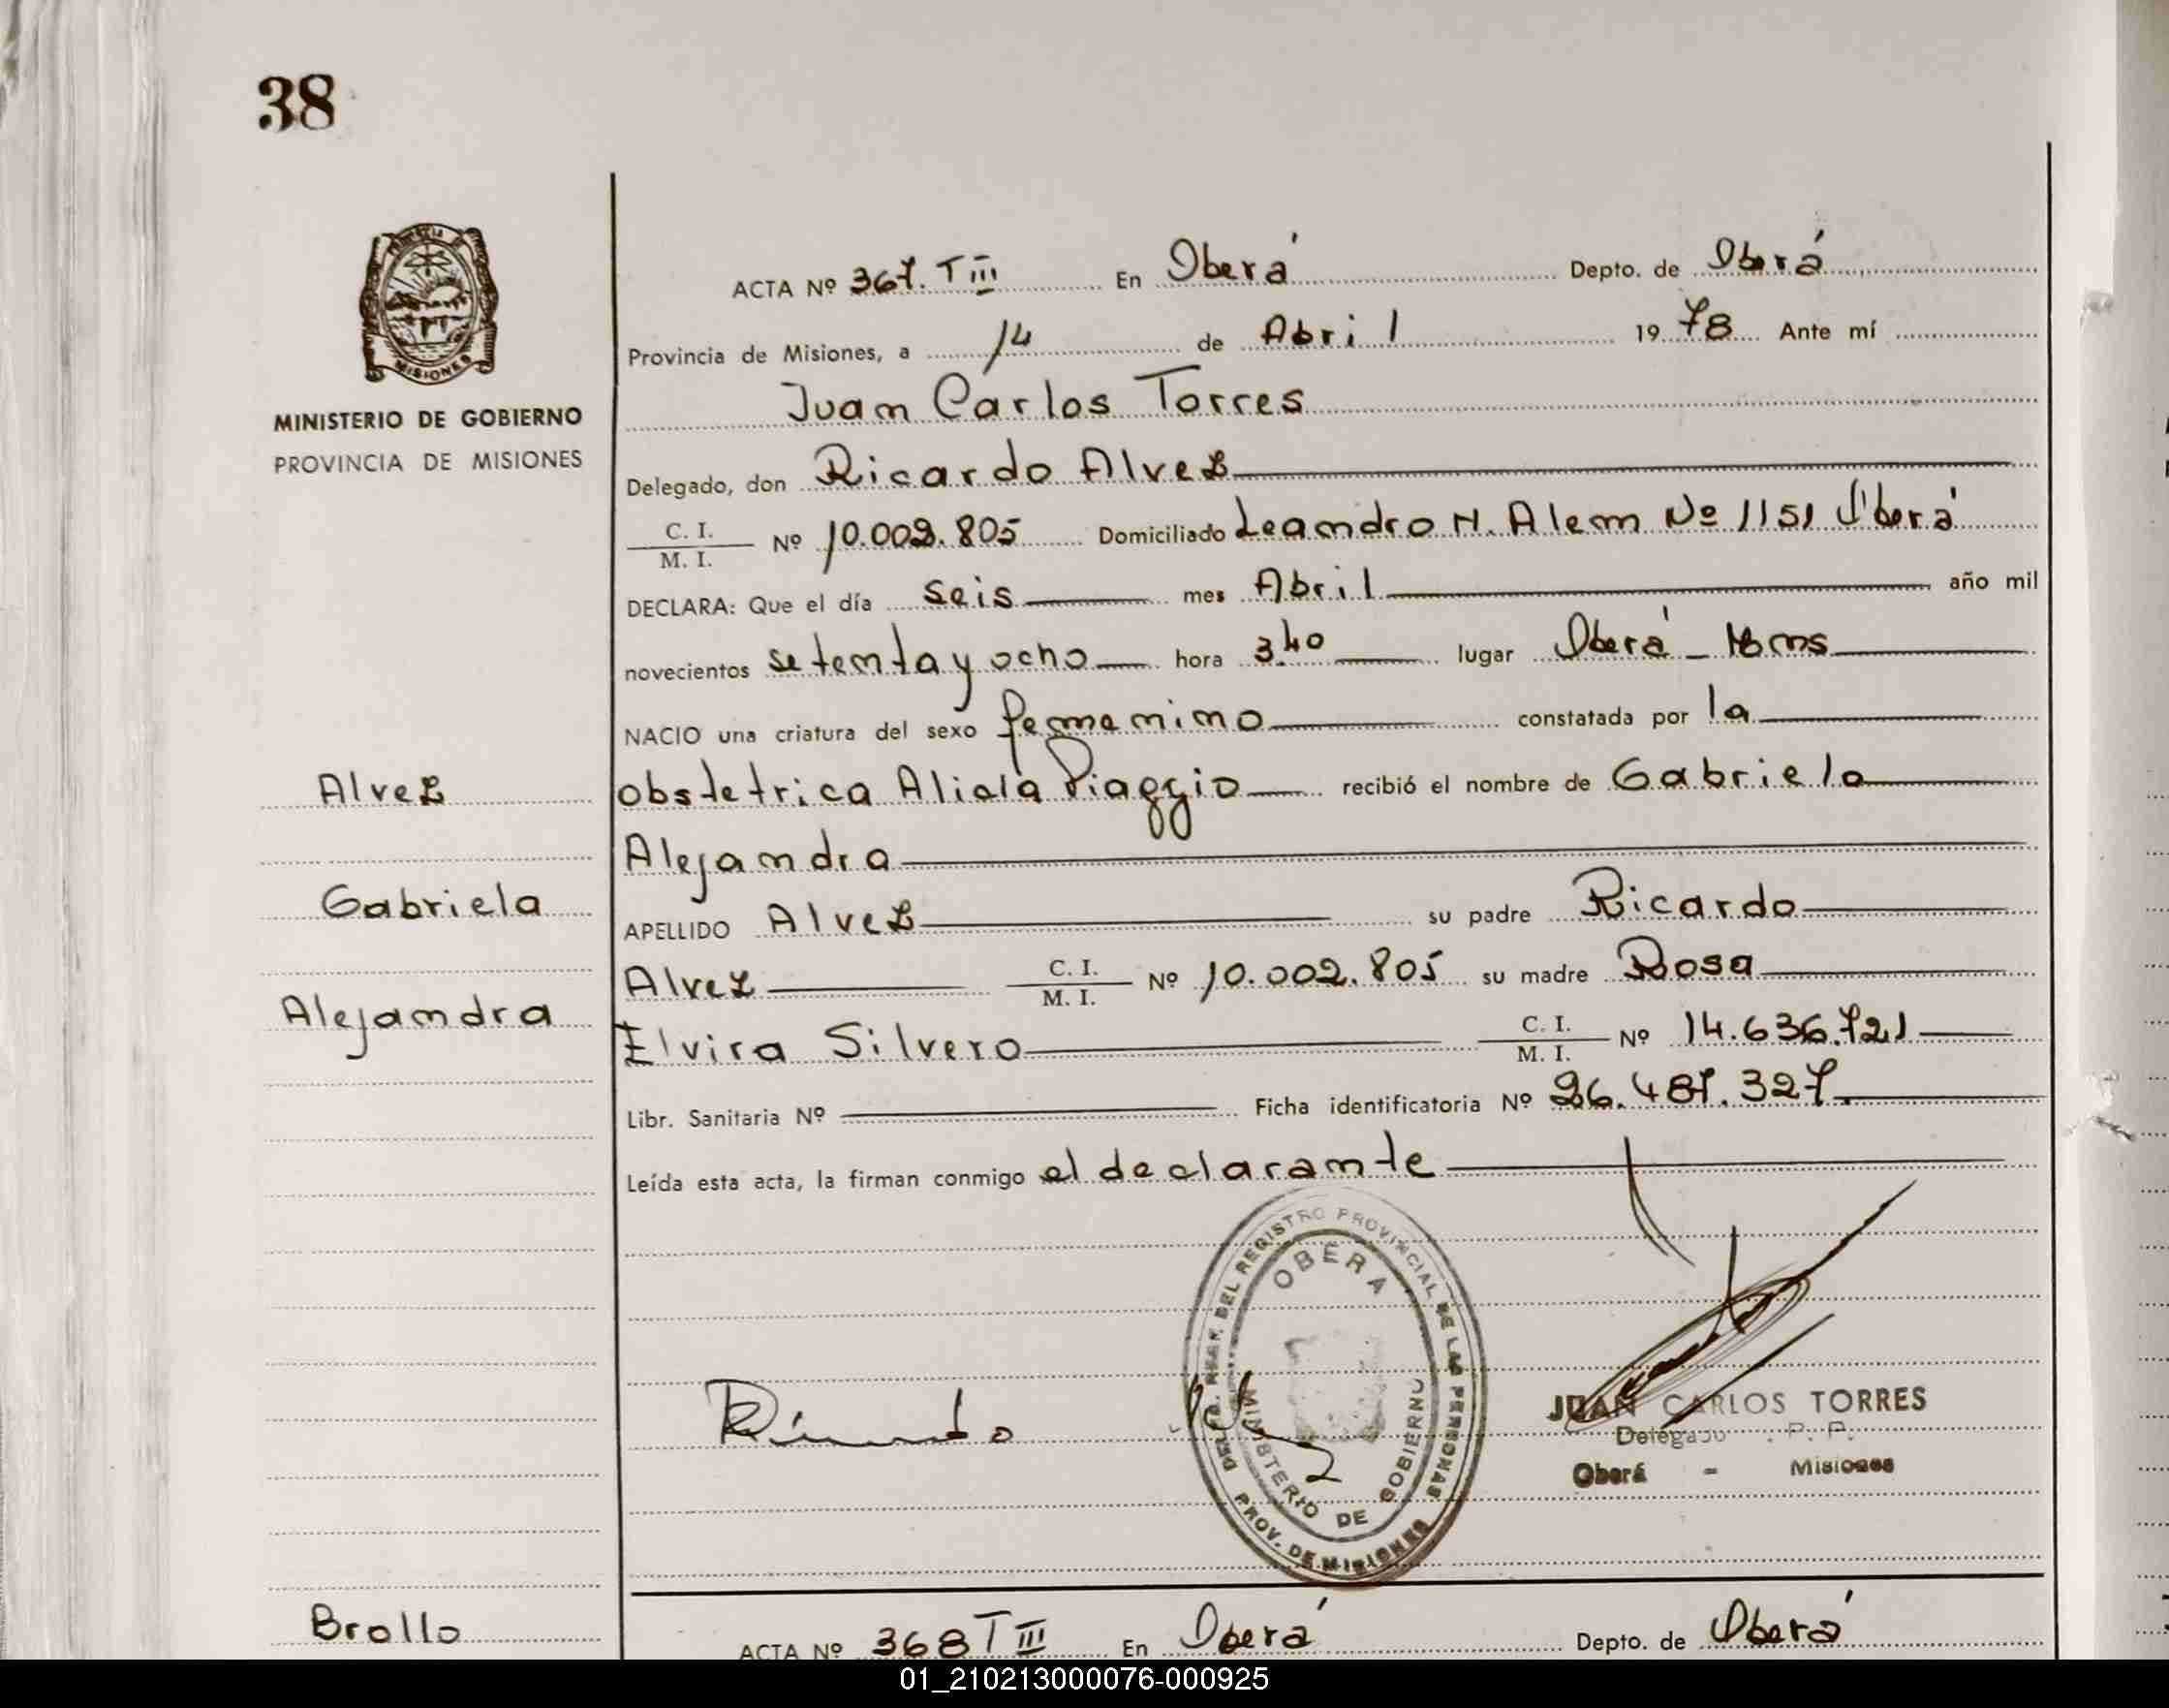 38
ACTA Nº 367. T III En Oberá Depto. de Oberá
Provincia de Misiones, a 14 de Abril 1978 Ante mí
Juan Carlos Torres
MINISTERIO DE GOBIERNO
PROVINCIA DE MISIONES
Delegado, don Ricardo Alvez
C. I.
M. I. Nº 10.002.805 Domiciliado Leandro N. Alem Nº 1151 Oberá
DECLARA: Que el día seis mes Abril año mil
novecientos setenta y ocho hora 3.40 lugar Oberá -
NACIO una criatura del sexo femenino constatada por la
Alvez
obstetrica Alicia Piaggio recibió el nombre de Gabriela
Alejandra
Gabriela
APELLIDO Alvez su padre Ricardo
Alvez C. I.
M. I. Nº 10.002.805 su madre Rosa
Alejandra
Elvira Silvero C. I.
M. I. Nº 14.636.721
Libr. Sanitaria Nº Ficha identificatoria Nº 26.487.327.
Leída esta acta, la firman conmigo el declarante
DEL REGISTRO PROVINCIAL DE LAS PERSONAS
OBERA
MINISTERIO DE GOBIERNO
PROV. DE MISIONES
JUAN CARLOS TORRES
Delegado R. P. P.
Oberá - Misiones
Brollo
ACTA Nº 368 T III En Oberá Depto. de Oberá
01_210213000076-000925